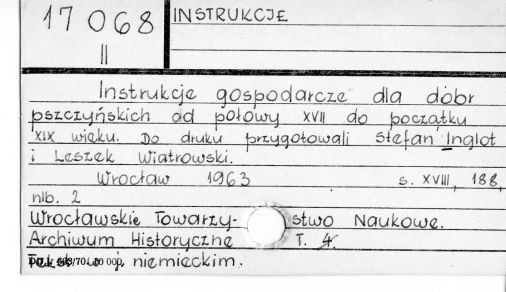 17068
II
INSTRUKCJE
Instrukcje gospodarcze dla dóbr
pszczyńskich od połowy XVII do początku
XIX wieku. Do druku przygotowali Stefan Inglot
i Leszek Wiatrowski.
Wrocław 1963 s. XVIII, 188,
nlb. 2
Wrocławskie Towarzystwo Naukowe.
Archiwum Historyczne T. 4.
Tekst w j. niemieckim.